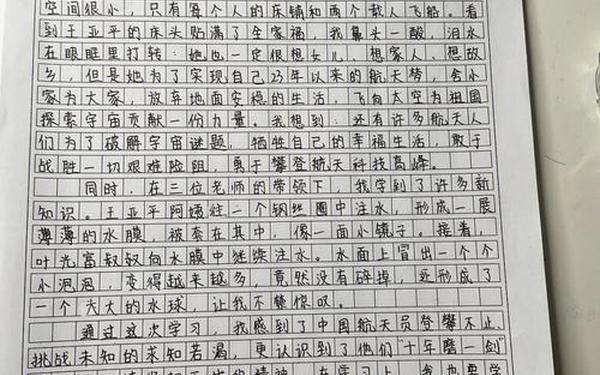 空间很小，只有每个人的床铺和两个载人飞船。看
到王亚平的床头贴满了全家福，我鼻头一酸，泪水
在眼眶里打转：她也一定很想女儿、想家人、想故
乡，但是她为了实现自己23年以来的航天梦，舍小
家为大家，放弃地面安稳的生活，飞向太空为祖国
探索宇宙贡献一份力量。我想到：还有许多航天人
们为了破解宇宙谜题，牺牲自己的幸福生活，敢于
战胜一切艰难险阻，勇于攀登航天科技高峰。
同时，在三位老师的带领下，我学到了许多新
知识。王亚平阿姨往一个钢丝圈中注水，形成一层
薄薄的水膜，被套在其中，像一面小镜子。接着，
叶光富叔叔向水膜中继续注水。水面上冒出一个个
小泡泡，变得越来越多，竟然没有碎掉，还形成了
一个大大的水球，让我不禁惊叹。
通过这次学习，我感到了中国航天员登攀不止、
挑战未知的求知若渴，更认识到了他们“十年磨一剑”
的精神。在学习上，我也要学